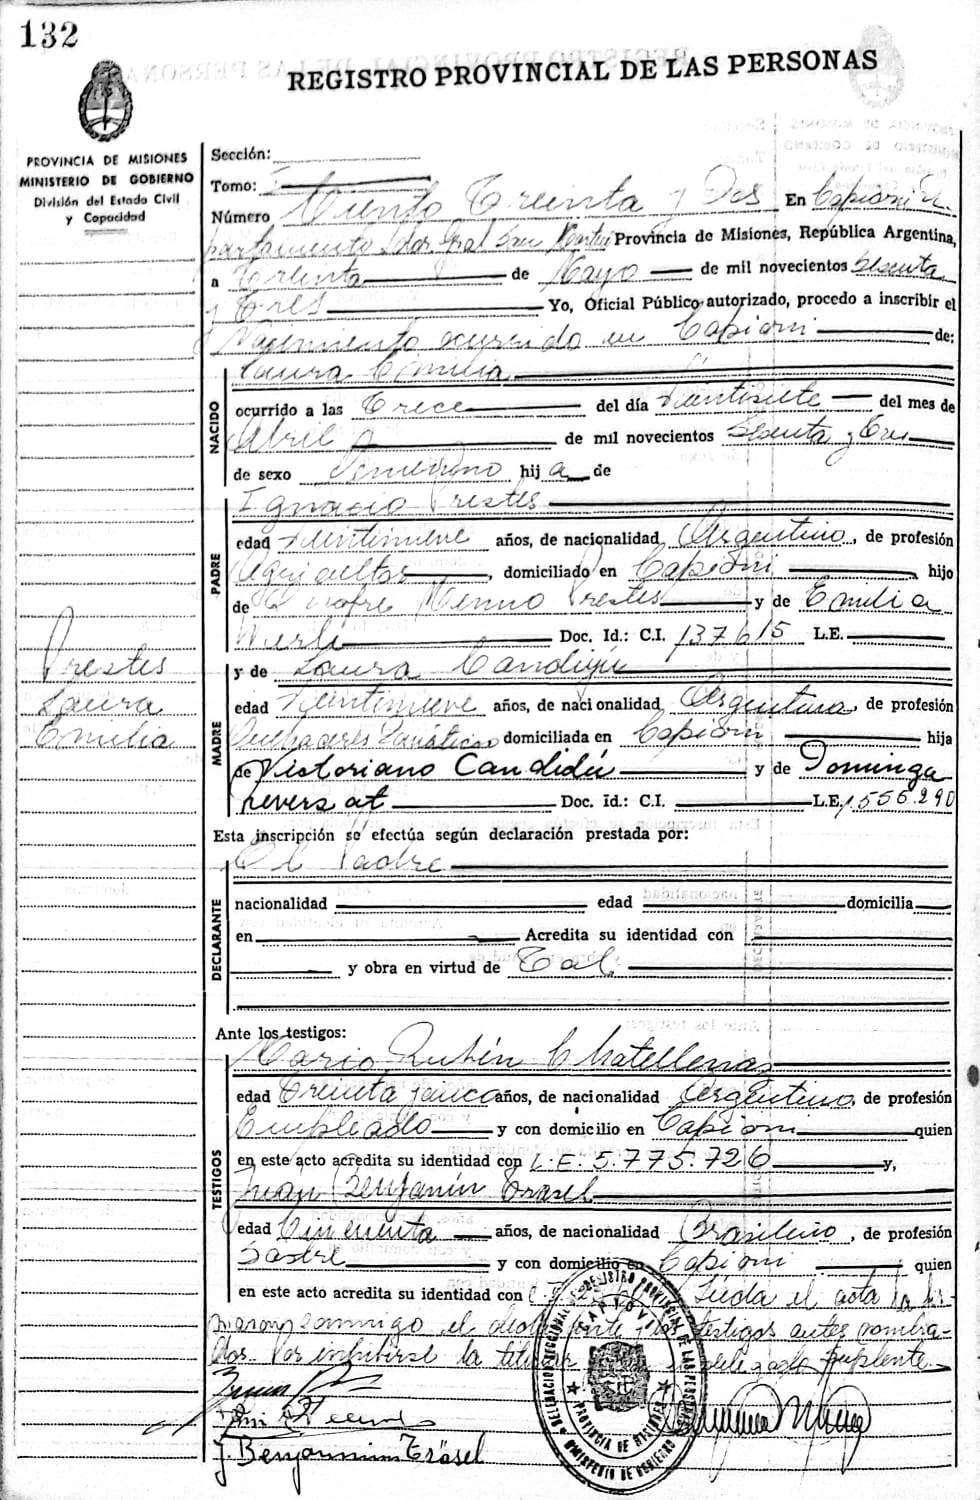 132
REGISTRO PROVINCIAL DE LAS PERSONAS
PROVINCIA DE MISIONES
MINISTERIO DE GOBIERNO
División del Estado Civil
y Capacidad
Sección:
Tomo: I
Número Ciento Treinta y Dos En Capioví
partamento Ldor. Gral San Martín Provincia de Misiones, República Argentina,
a Treinta de Mayo de mil novecientos Sesenta
y Tres Yo, Oficial Público autorizado, procedo a inscribir el
Nacimiento ocurrido en Capioví de:
Laura Emilia
NACIDO
ocurrido a las Trece del día Veintisiete del mes de
Abril de mil novecientos Sesenta y Tres
de sexo Femenino hija de
Ignacio Prestes
PADRE
edad Veintinueve años, de nacionalidad Argentino, de profesión
Agricultor, domiciliado en Capioví hijo
de Onofre Menno Prestes y de Emilia
Werle Doc. Id.: C.I. 137615 L.E.
y de Laura Candidú
MADRE
edad Veintinueve años, de nacionalidad Argentina, de profesión
Quehaceres domiciliada en Capioví hija
de Victoriano Candidú y de Dominga
reversat Doc. Id.: C.I. L.E. 1.556.290
Prestes
Laura
Emilia
Esta inscripción se efectúa según declaración prestada por:
El Padre
DECLARANTE
nacionalidad edad domicilia
en Acredita su identidad con
y obra en virtud de Tal
Ante los testigos:
Mario Rubén Chatellenas
TESTIGOS
edad Treinta y cinco años, de nacionalidad Argentino, de profesión
Empleado y con domicilio en Capioví quien
en este acto acredita su identidad con L.E. 5.775.726 y,
Juan Benjamín Trasel
edad Cincuenta años, de nacionalidad Brasileño, de profesión
Sastre y con domicilio en Capioví quien
en este acto acredita su identidad con Leída el acta la fir-
maron conmigo el testigos antes nombra-
dos. Por suplente
J. Benjamin Träsel
DELEGACION SECCIONAL DE REGISTRO PROVINCIAL DE LAS PERSONAS
CAPIOVI
PROVINCIA DE MISIONES
MINISTERIO DE GOBIERNO